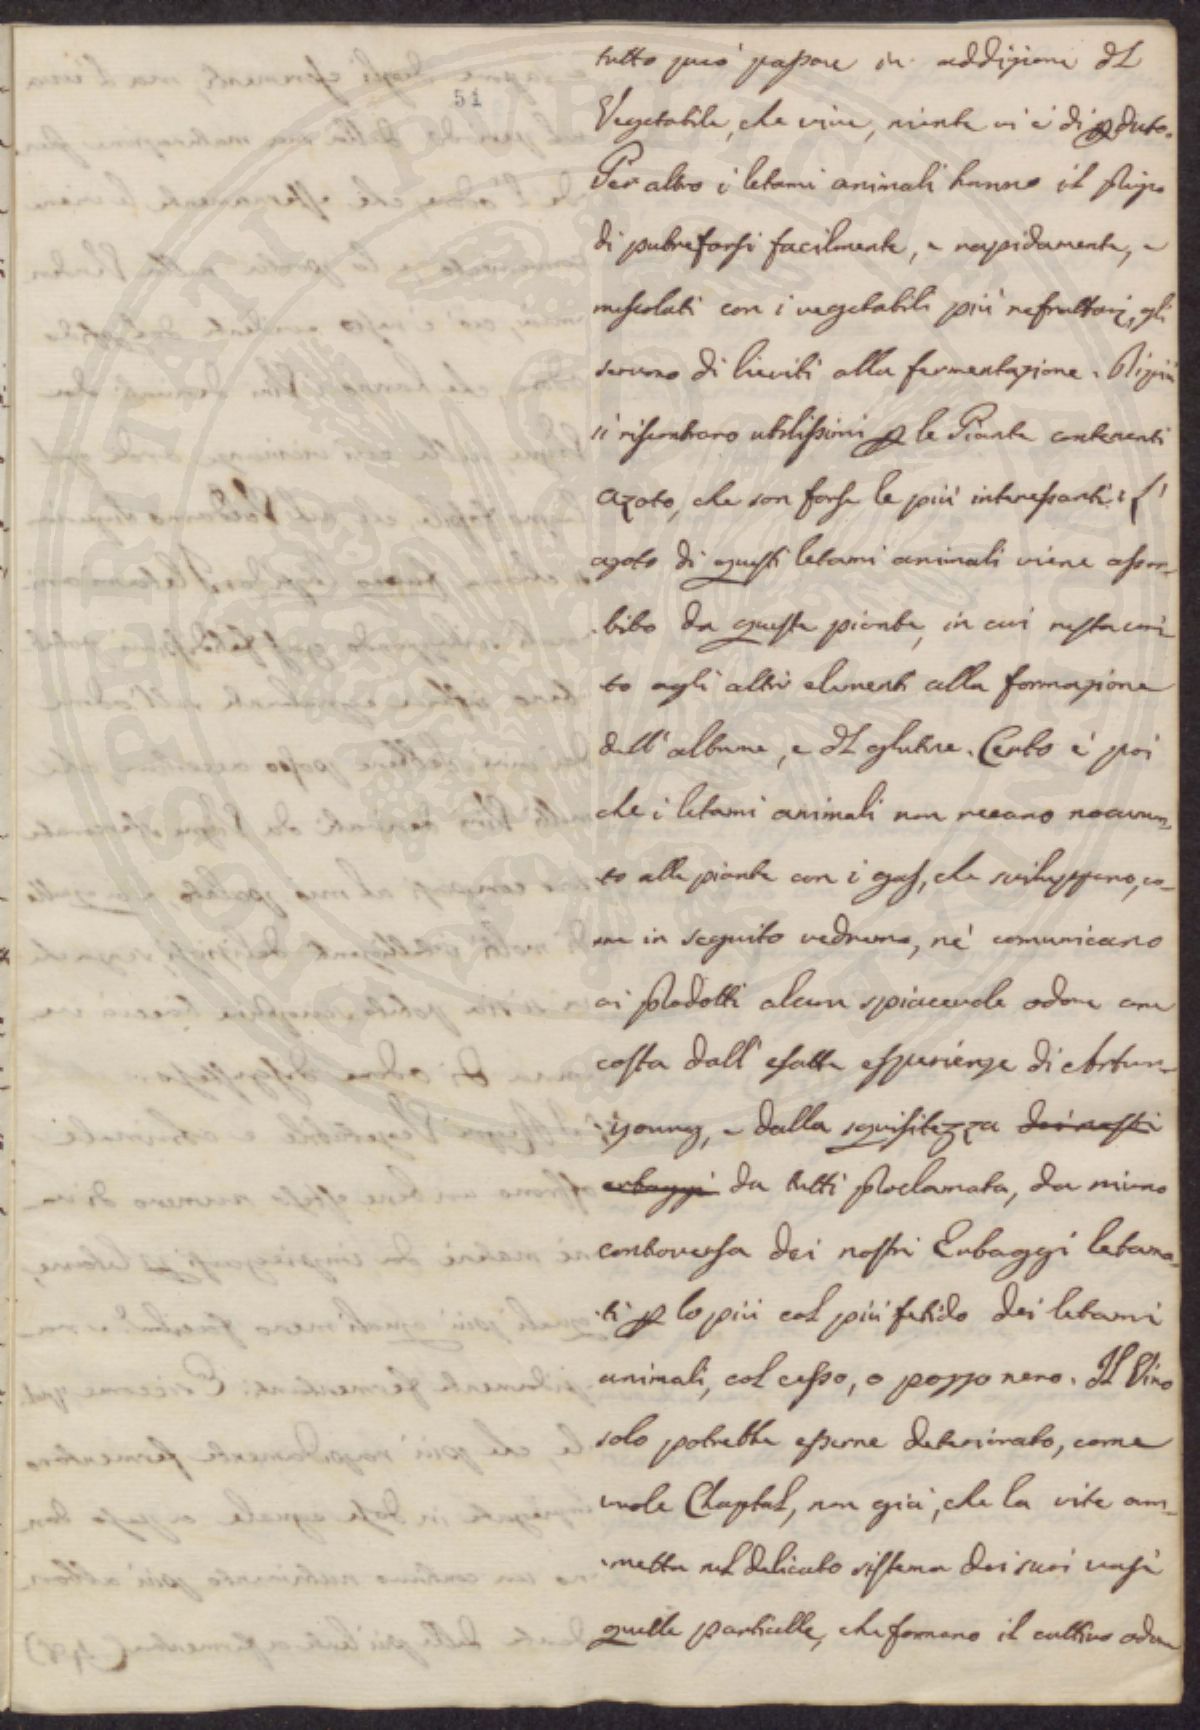 51
tutto può passare in addizione del
Vegetabile, che vive, niente vi è di pduto.
Per altro i letami animali hanno il
di putrefarsi facilmente, e rapidamente, e
mescolati con i vegetabili più refrattarj, gli
servono di lieviti alla fermentazione. Di più
si riscontrano utilissimi p le Piante contenenti
azoto, che son forse le più interessanti: L'
azoto di questi letami animali viene assor-
bito da queste piante, in cui resta uni-
to agli altri elementi alla formazione
dell'albume, e del glutine. Certo è poi
che i letami animali non recano nocumen-
to alle piante con i gas, che sviluppano, co-
me in seguito vedremo, nè comunicano
ai Prodotti alcun spiacevole odore come
costa dall'esatte esperienze di Artur-
young, e dalla squisitezza dei nostri
erbaggi da tutti proclamata, da niuno
controversa dei nostri Erbaggi letama-
ti p lo più col più fetido dei letami
animali, col cesso, o pozzo nero. Il Vino
solo potrebbe esserne deteriorato, come
vuole Chaptal, non già, che la vite am-
metta nel delicato sistema dei suoi vasi
quelle particelle, che formano il cattivo odore